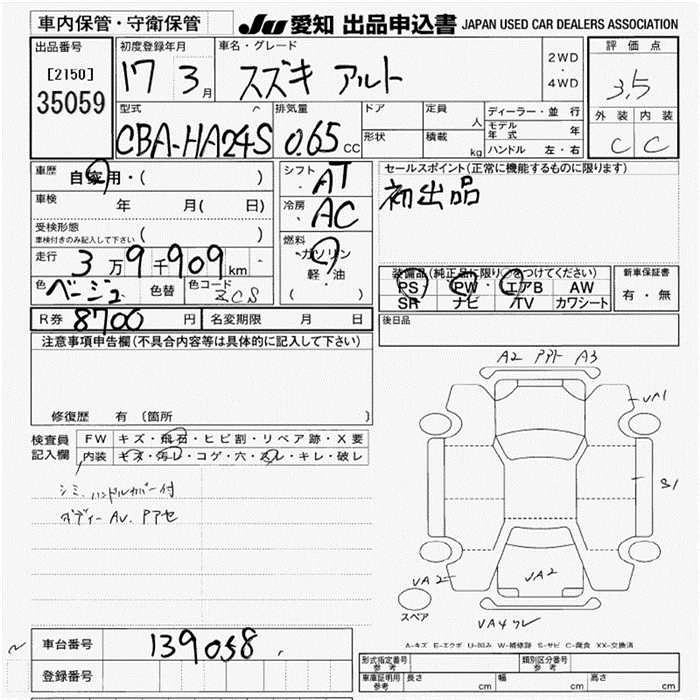 車内保管・守衛保管
JU 愛知 出品申込書 JAPAN USED CAR DEALERS ASSOCIATION
出品番号
[2150]
35059
初度登録年月
17 3月
車名・グレード
スズキ アルト
2WD
・
4WD
評価点
3,5
外装 内装
C C
型式
CBA-HA24S
排気量
0.65 CC
ドア
形状
定員 人
積載 kg
ディーラー・並行
モデル年式 年
ハンドル 左・右
車歴 自家用・( )
車検 年 月( 日)
受検形態
車検付きのみ記入して下さい ( )
走行 3万9千909km
色 ベージュ 色替 色コード ZCS
シフト AT
冷房 AC
燃料
ガソリン
軽・油
( )
セールスポイント(正常に機能するものに限ります)
初出品
装備品(純正品に限り○をつけてください)
PS PW エアB AW
SR ナビ TV カワシート
新車保証書
有・無
R券 8700 円 名変期限 月 日
後日品
注意事項申告欄(不具合内容等は具体的に記入して下さい)
修復歴 有 〔箇所 〕
検査員
記入欄
FW キズ・飛石・ヒビ割・リペア跡・X要
内装 キズ・汚レ・コゲ・穴・スレ・キレ・破レ
シミ、ハンドルカバー付
ボディー AU、PアセA
A2 PPト A3
UA1
S1
UA2
UA2
UA4ワレ
スペア
A-キズ E-エクボ U-凹み W-補修跡 S-サビ C-腐食 XX-交換済
車台番号 139058
登録番号
型式指定番号
参考
類別区分番号
参考
車庫証明用
参考
長さ cm 幅 cm 高さ cm